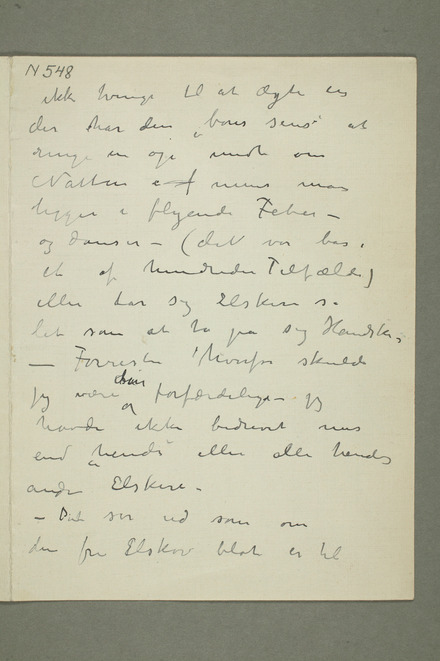 N 548
ikke tvinge til at ægte en
der har den "bons sens" at
ringe en op midt om
Natten mens man
ligger i flyende Feber –
og danser – (det var bas i
et af hundrede Tilfælde)
eller tar sig Elskere så
let som at ta på sig Handsker
– Forresten hvorfor skulde
jeg være den forfærdelige – jeg
havde ikke bedrevet mer
end hende eller alle hendes
andre Elskere –
– Det ser ud som om
den fri Elskov blot er til